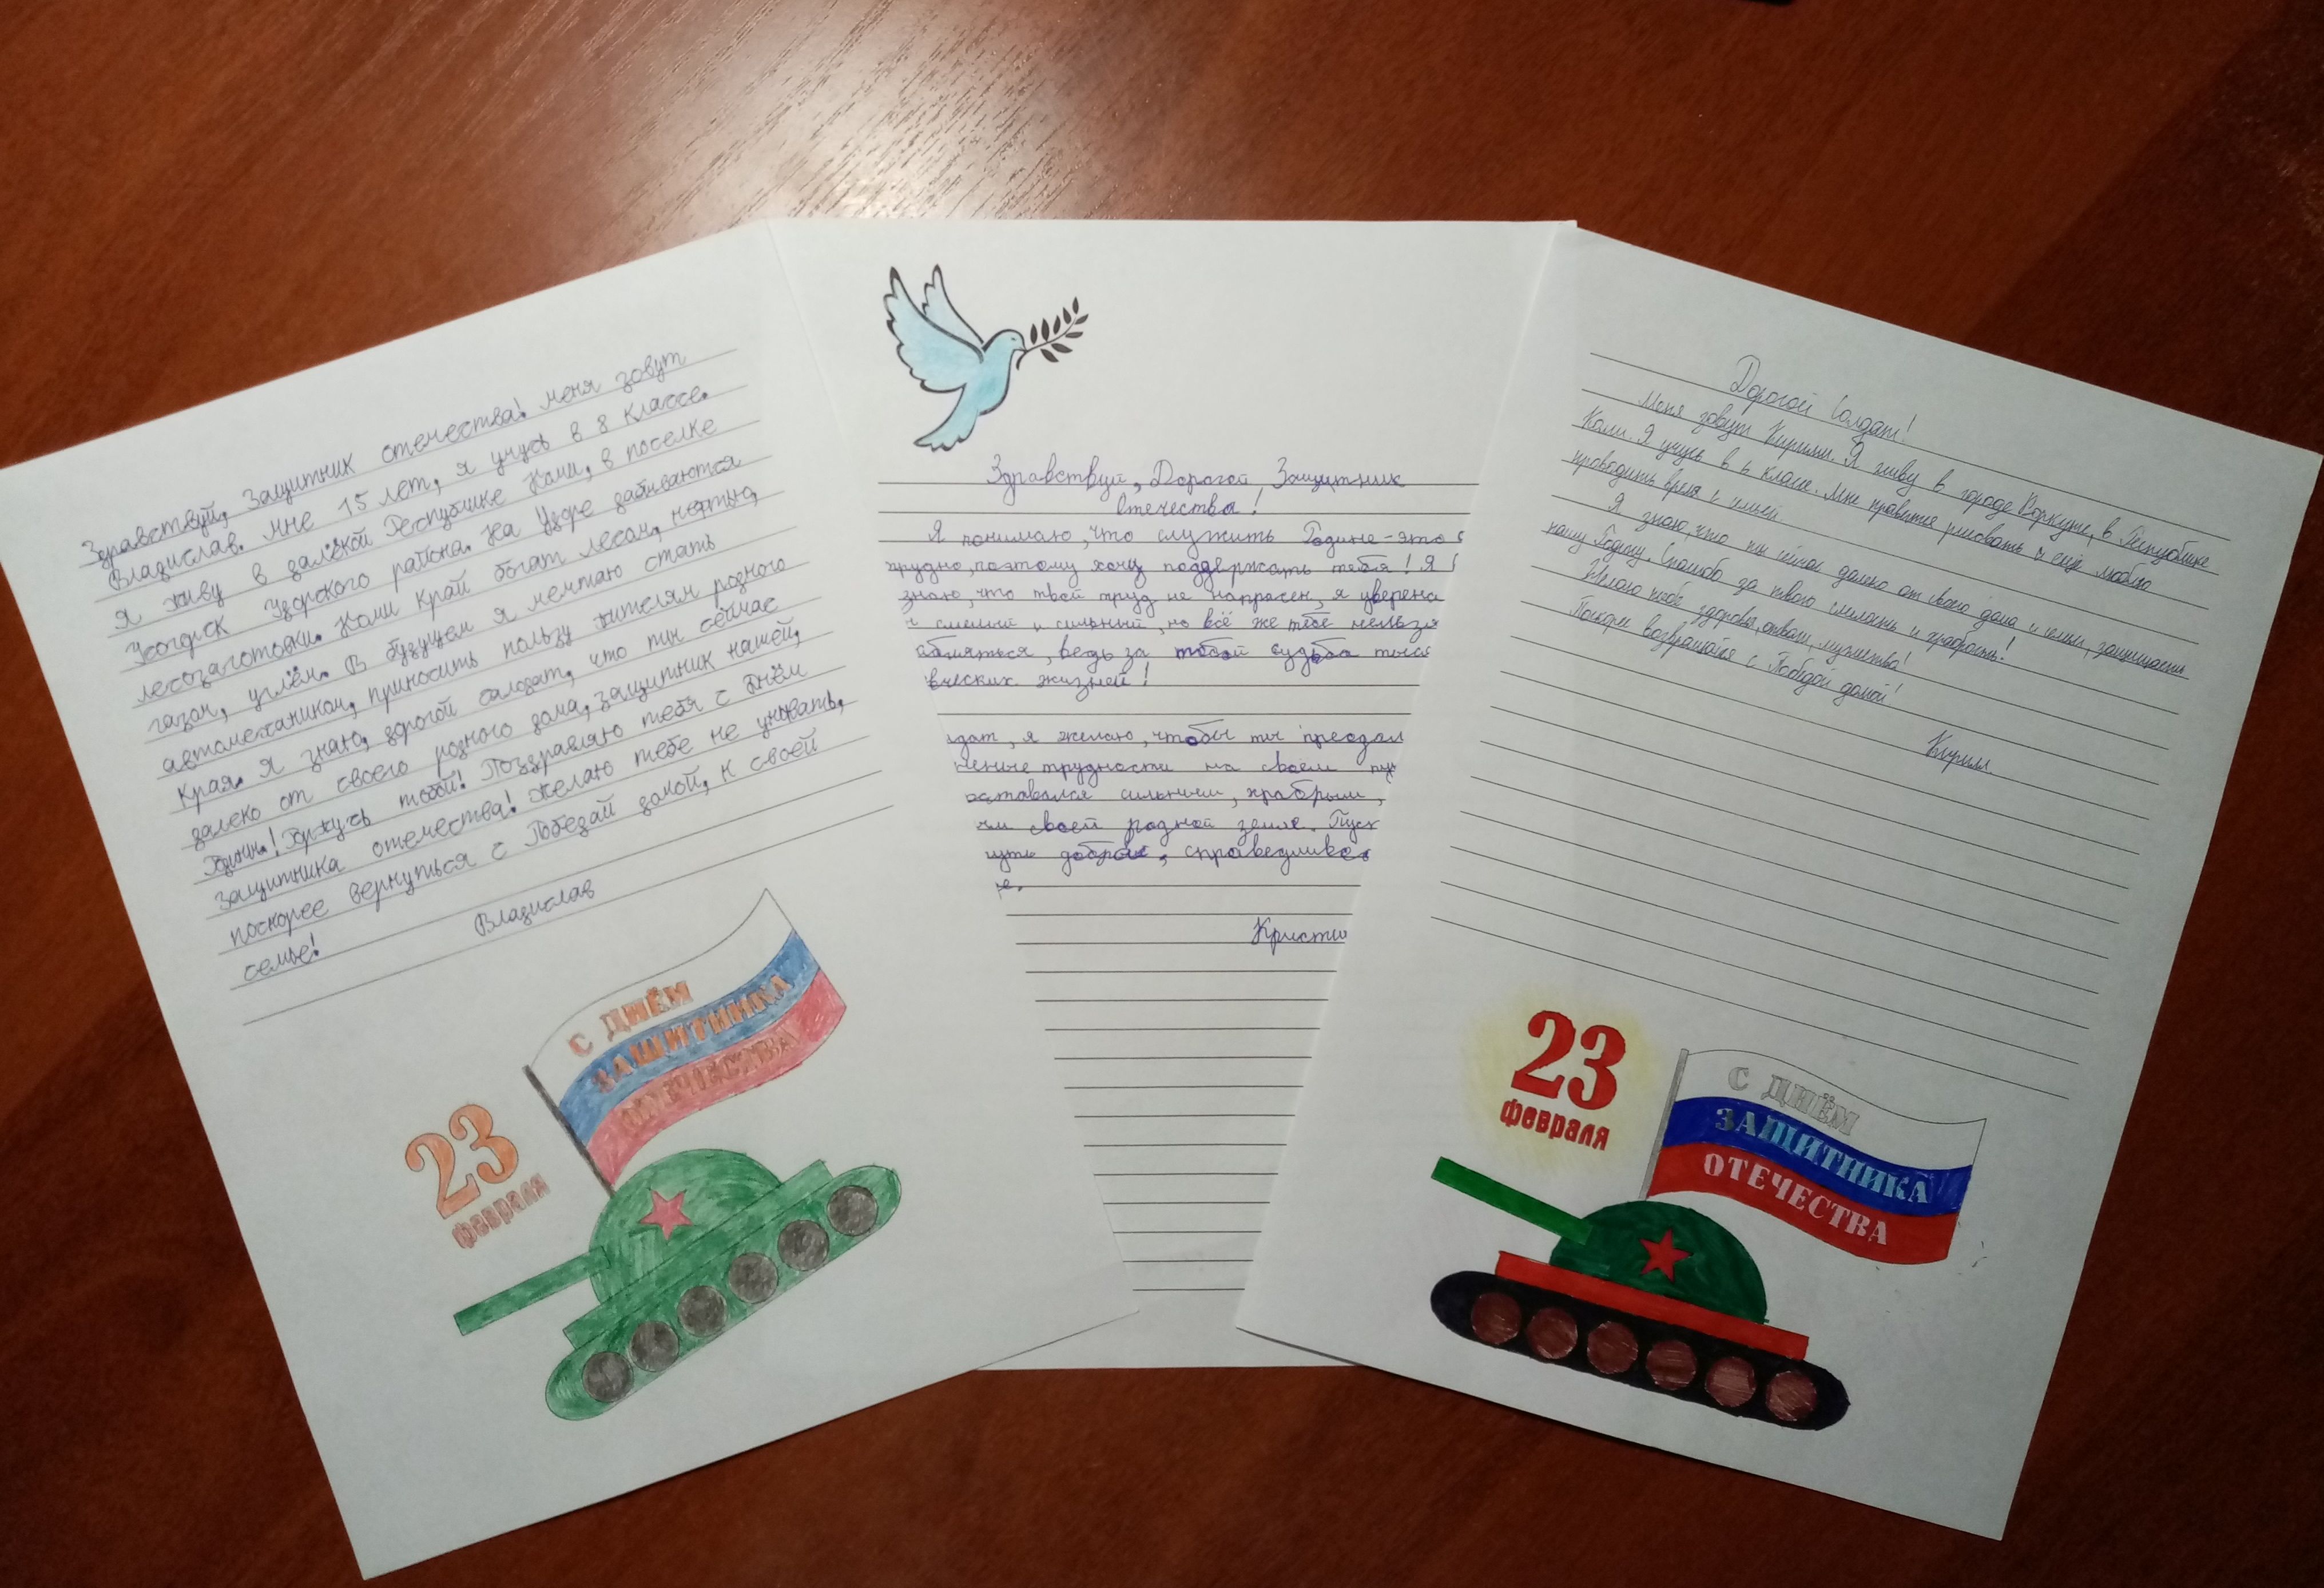 Здравствуй, Защитник отечества! меня зовут
Владислав. Мне 15 лет, я учусь в 8 классе.
Я живу в далёкой Республике Коми, в поселке
Усогорск Удорского района. На Удоре забываются
лесозаготовки. Коми край богат лесом, нефтью,
газом, углём. В будущем я мечтаю стать
автомехаником, приносить пользу жителям родного
Края. Я знаю, дорогой солдат, что ты сейчас
далеко от своего родного дома, защитник нашей
Родины! Горжусь тобой! Поздравляю тебя с Днём
Защитника отечества! Желаю тебе не унывать,
поскорее вернуться с Победай домой, к своей
семье!
Владислав
С ДНЁМ
ЗАЩИТНИКА
ОТЕЧЕСТВА
23
февраля
Здравствуй, Дорогой Защитник
Отечества!
Я понимаю, что служить Родине - это
трудно, поэтому хочу поддержать тебя! Я
знаю, что твой труд не напрасен, я уверена
смелый и сильный, но всё же тебе нельзя
ведь за тобой судьба
жизней!
я желаю, чтобы ты
трудности на своём
оставался сильным, храбрым,
своей родной земле.
добром,
Дорогой Солдат!
Меня зовут Кирилл. Я живу в городе Воркуте, в Республике
Коми. Я учусь в 6 класе. Мне нравится рисовать и ещё люблю
проводить время с семьей.
Я знаю, что ты сейчас далеко от своего дома и семьи, защищаешь
нашу Родину. Спасибо за твою смелость и храбрость!
Желаю тебе здоровья, отваги, мужества!
Поскорее возвращайся с Победой домой!
Кирилл.
23
февраля
С ДНЁМ
ЗАЩИТНИКА
ОТЕЧЕСТВА